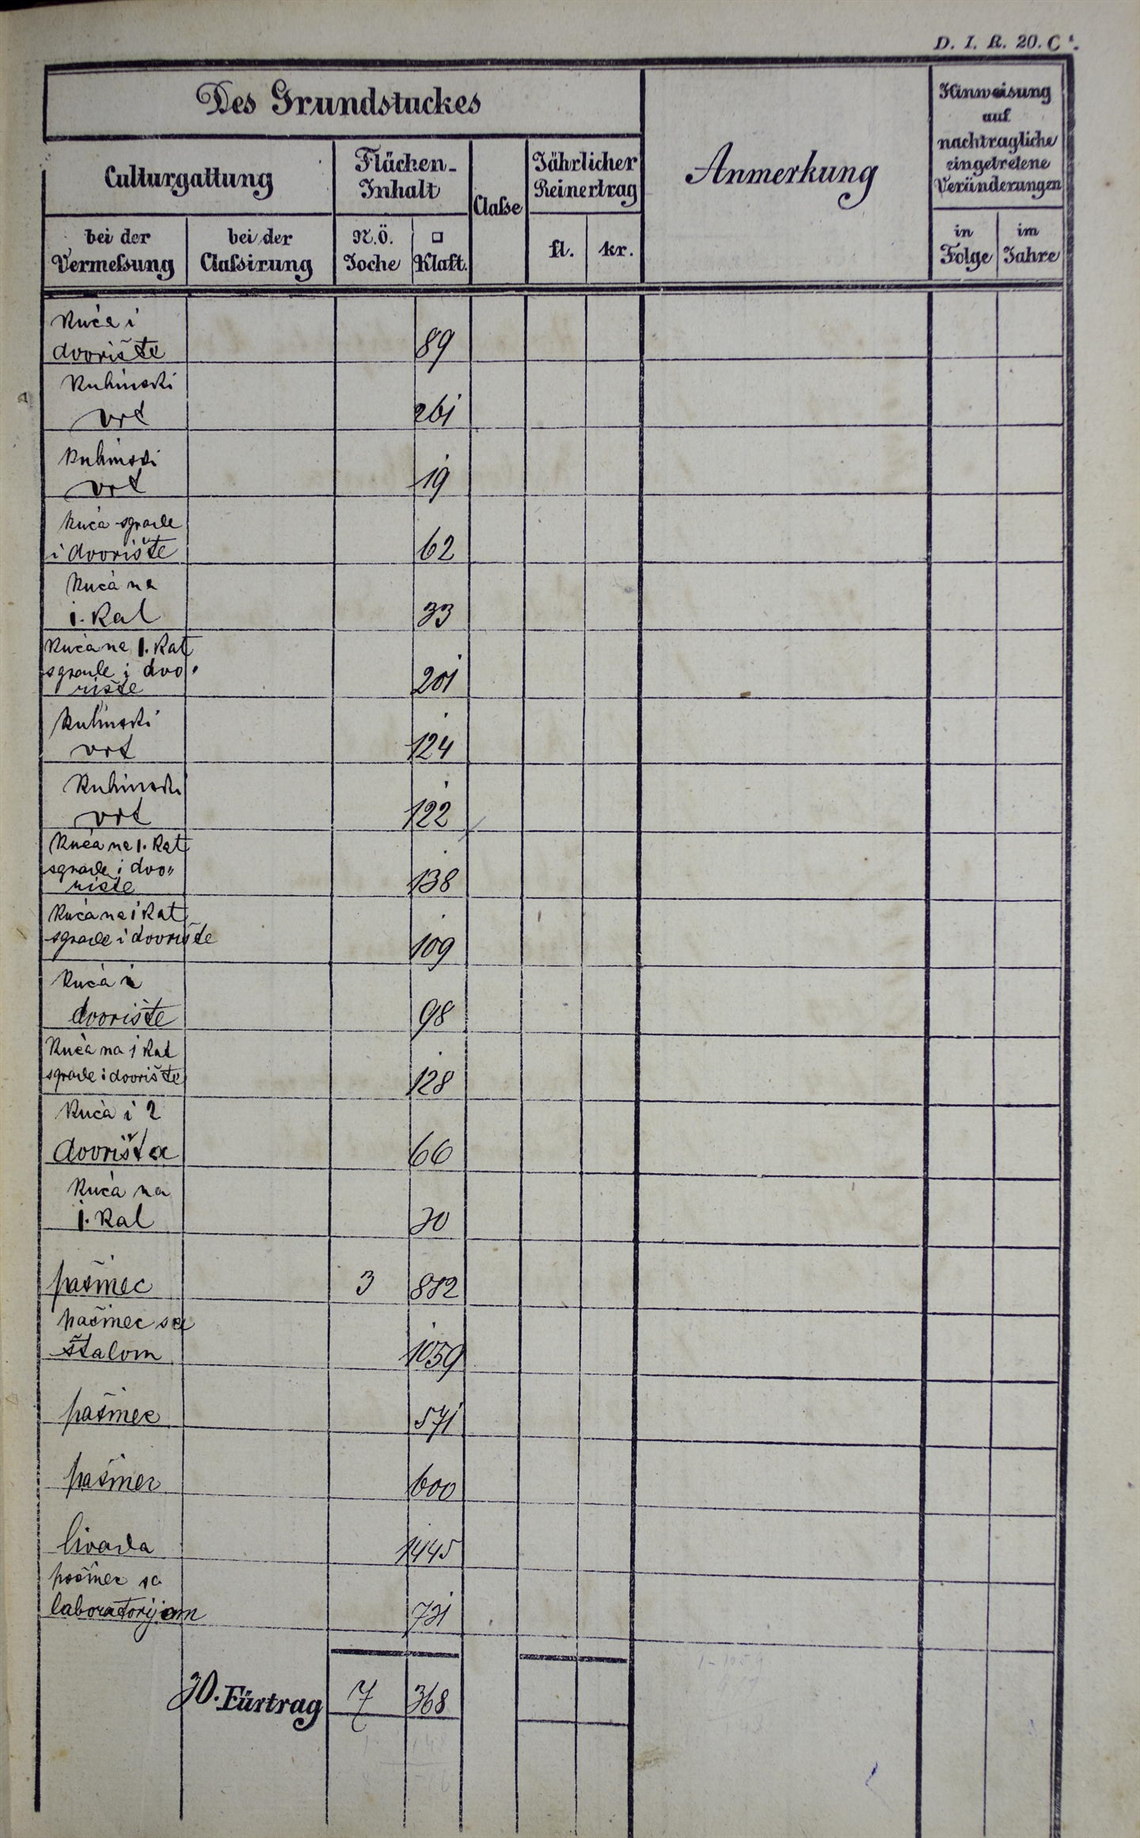 D. I. R. 20. C
Des Grundstuckes
Culturgattung
Flächen-
Inhalt
Claſse
Jährlicher
Reinertrag
Anmerkung
Hinweisung
auf
nachtragliche
eingetretene
Veränderungen
bei der
Vermeſsung
bei der
Claſsirung
N.Ö.
Joche
□
Klaft.
fl.
kr.
in
Folge
im
Jahre
Kuća i
dvorište 89
Kuhinski
vrt 261
Kuhinski
vrt 19
Kuća sgrade
i dvorište 62
Kuća na
1. Kat 33
Kuća na 1. Kat
sgrade i dvo-
rište 201
Kuhinski
vrt 124
Kuhinski
vrt 122
Kuća na 1. Kat
sgrade i dvo-
rište 138
Kuća na 1 Kat
sgrade i dvorište 109
Kuća i
dvorište 98
Kuća na 1 Kat
sgrade i dvorište 128
Kuća i 2
dvorišta 66
Kuća na
1. Kat 30
pašinec 3 812
pašinec sa
štalom 1059
pašinec 571
pašinec 600
livada 1445
pašinec sa
laboratorijom 731
30. Fürtrag 7 368